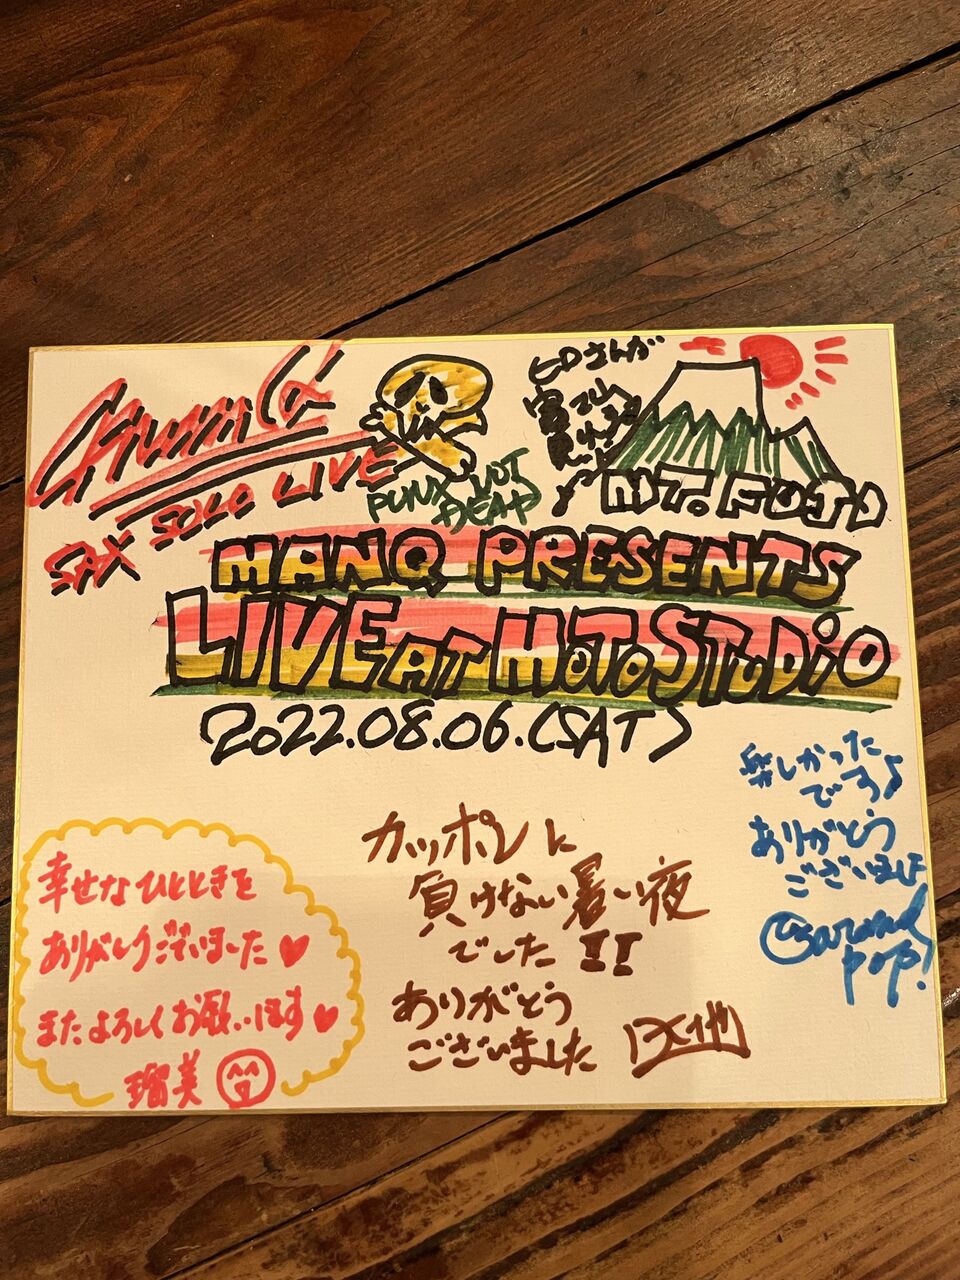 SAX SOLO LIVE
PUNX NOT
DEAD
EDさんが
富士山
MT. FUJI
MANQ PRESENTS
LIVE AT MOTO STUDIO
2022.08.06.(SAT)
楽しかった
です♪
ありがとう
ございました
カッポレに
負けない暑い夜
でした!!
ありがとう
ございました
幸せなひとときを
ありがとうございました♥
またよろしくお願いします♥
瑠美